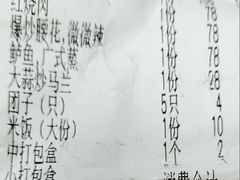 红烧肉 1份 78
爆炒腰花,微微辣 1份 78
鲈鱼 广式蒸 1份 78
大蒜炒马兰 1份 28
团子(只) 5只 4
米饭(大份) 1份 10
中打包盒 1个 2
小打包盒
消费合计